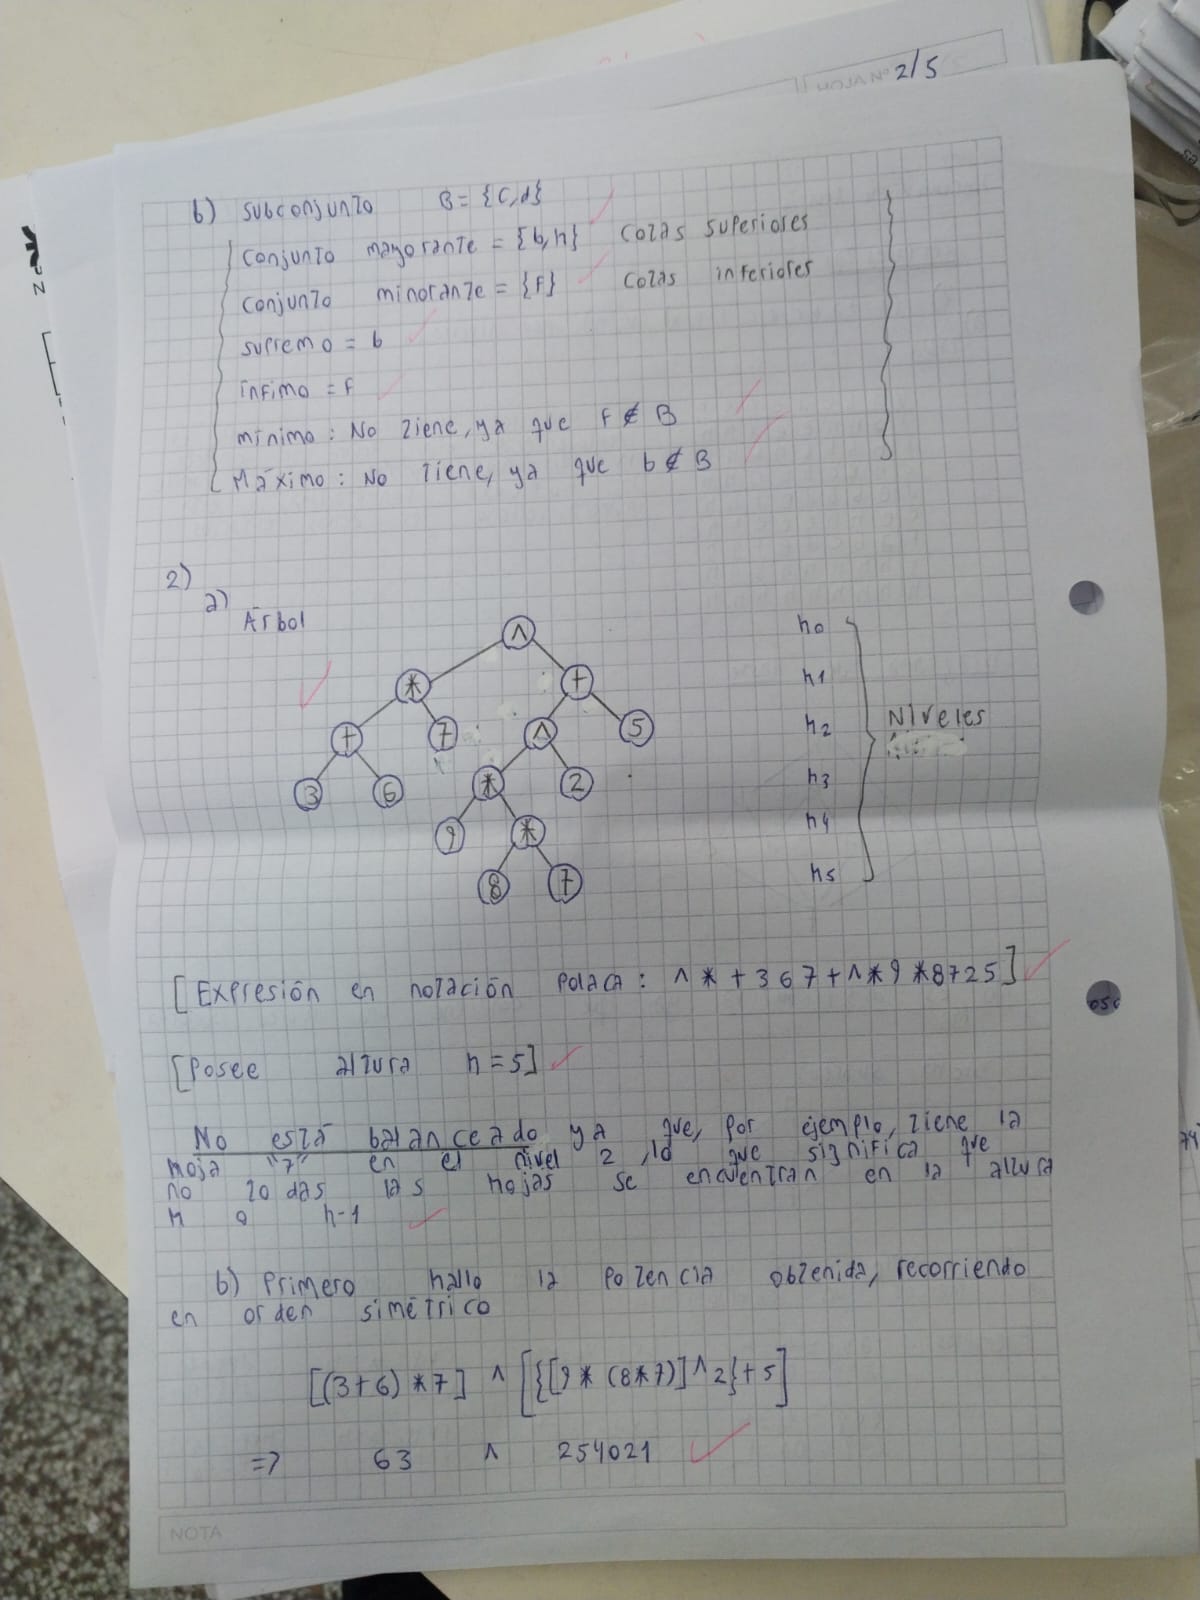 HOJA Nº 2/5
b) subconjunto B = {c,d}
conjunto mayorante = {b,h} cotas superiores
conjunto minorante = {f} cotas inferiores
supremo = b
ínfimo = f
mínimo: No tiene, ya que f ∉ B
Máximo: No tiene, ya que b ∉ B
2)
a)
Árbol
^ h0
* + h1
+ 7 ^ 5 h2
Niveles
3 6 * 2 h3
9 * h4
8 7 h5
[Expresión en notación polaca: ^ * + 3 6 7 + ^ * 9 * 8 7 2 5]
[Posee altura h = 5]
No está balanceado ya que, por ejemplo, tiene la
hoja "7" en el nivel 2, lo que significa que
no todas las hojas se encuentran en la altura
h o h-1
b) Primero hallo la potencia obtenida, recorriendo
en orden simétrico
[(3+6) * 7] ^ [{[9 * (8*7)] ^ 2} + 5]
=> 63 ^ 254021
NOTA